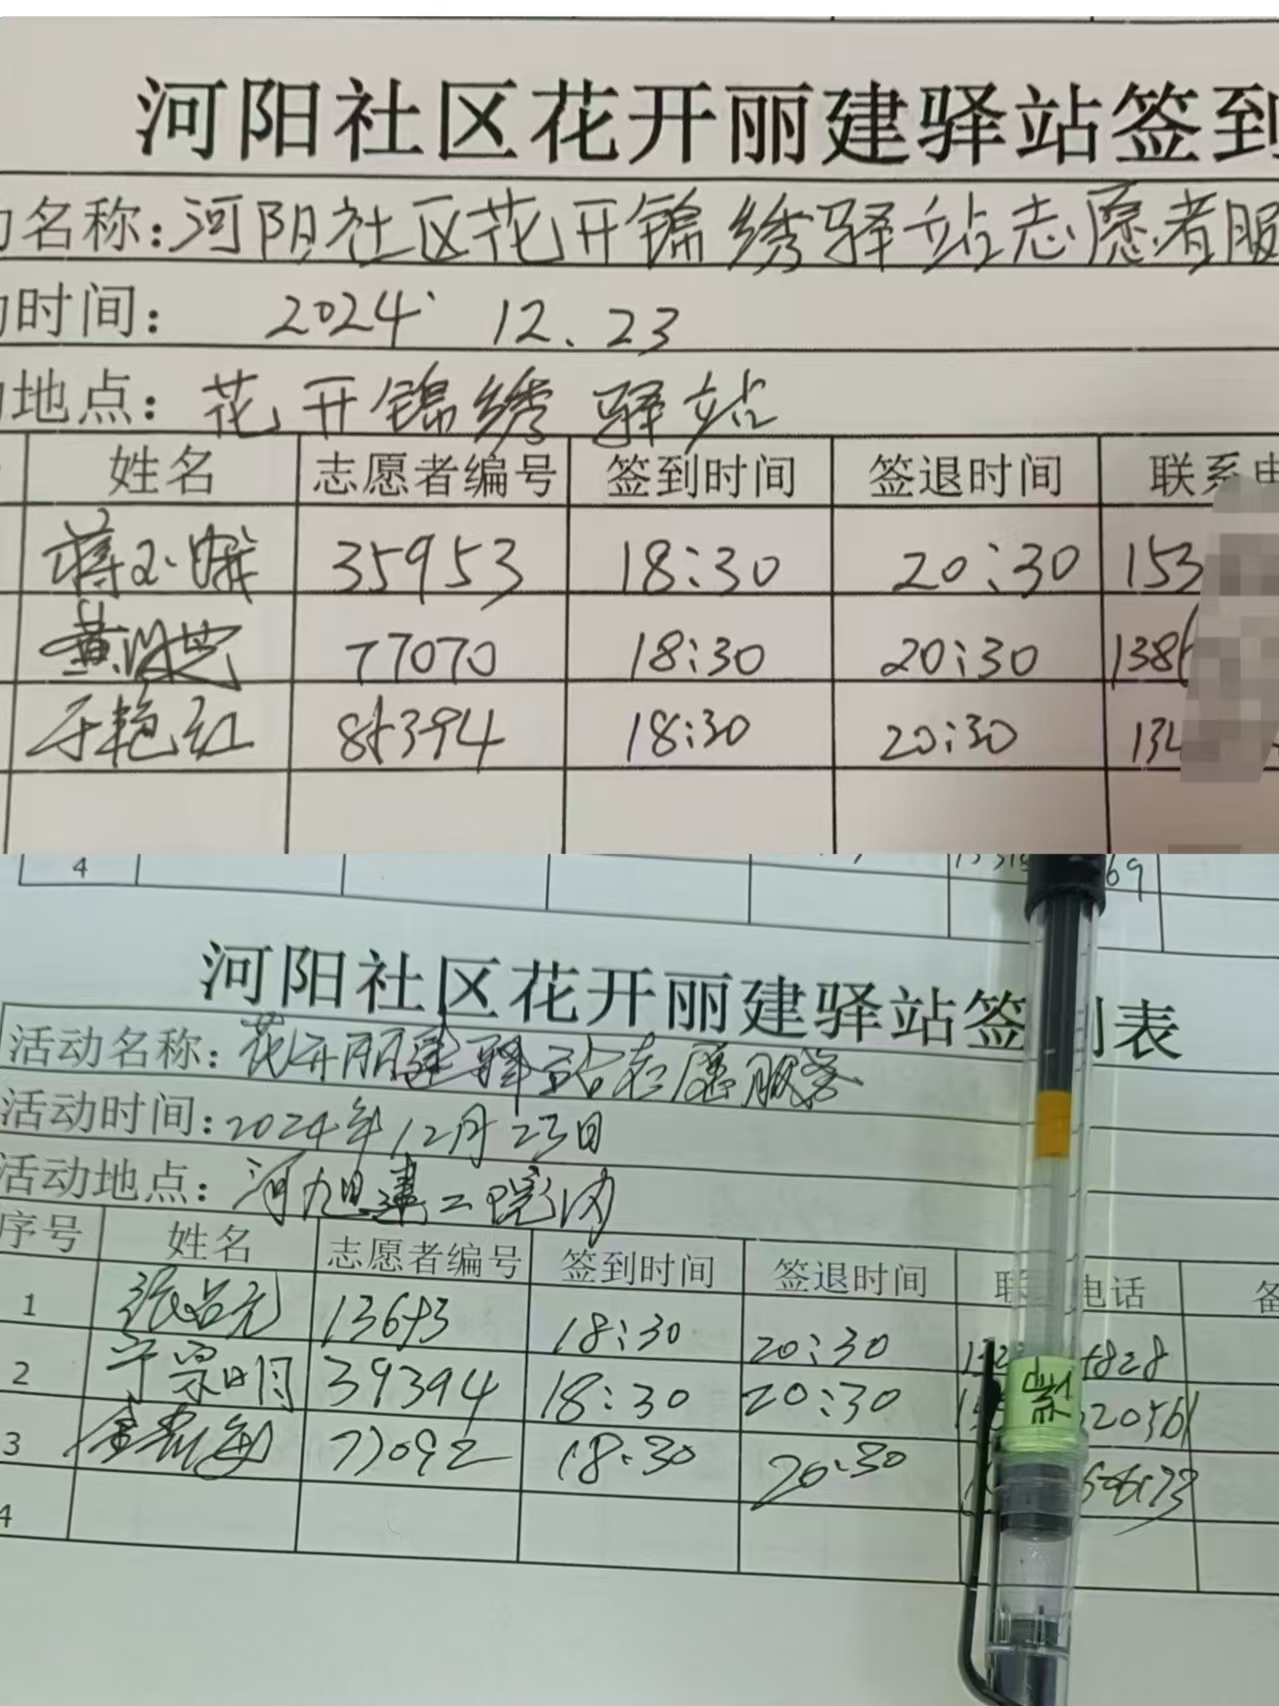 河阳社区花开丽建驿站签到
名称：河阳社区花开锦绣驿站志愿者服
时间： 2024 12.23
地点：花开锦绣驿站
姓名 志愿者编号 签到时间 签退时间 联系电
35953 18:30 20:30 153
77070 18:30 20:30 138
于艳红 18:30 20:30 134
4 69
河阳社区花开丽建驿站签 表
活动名称：花开丽建驿站志愿服务
活动时间：2024年12月23日
活动地点：河旭建工院内
序号 姓名 志愿者编号 签到时间 签退时间 联 电话 备
1 18:30 20:30 828
2 宗明 39394 18:30 20:30
3 77092 18:30 20:30
4